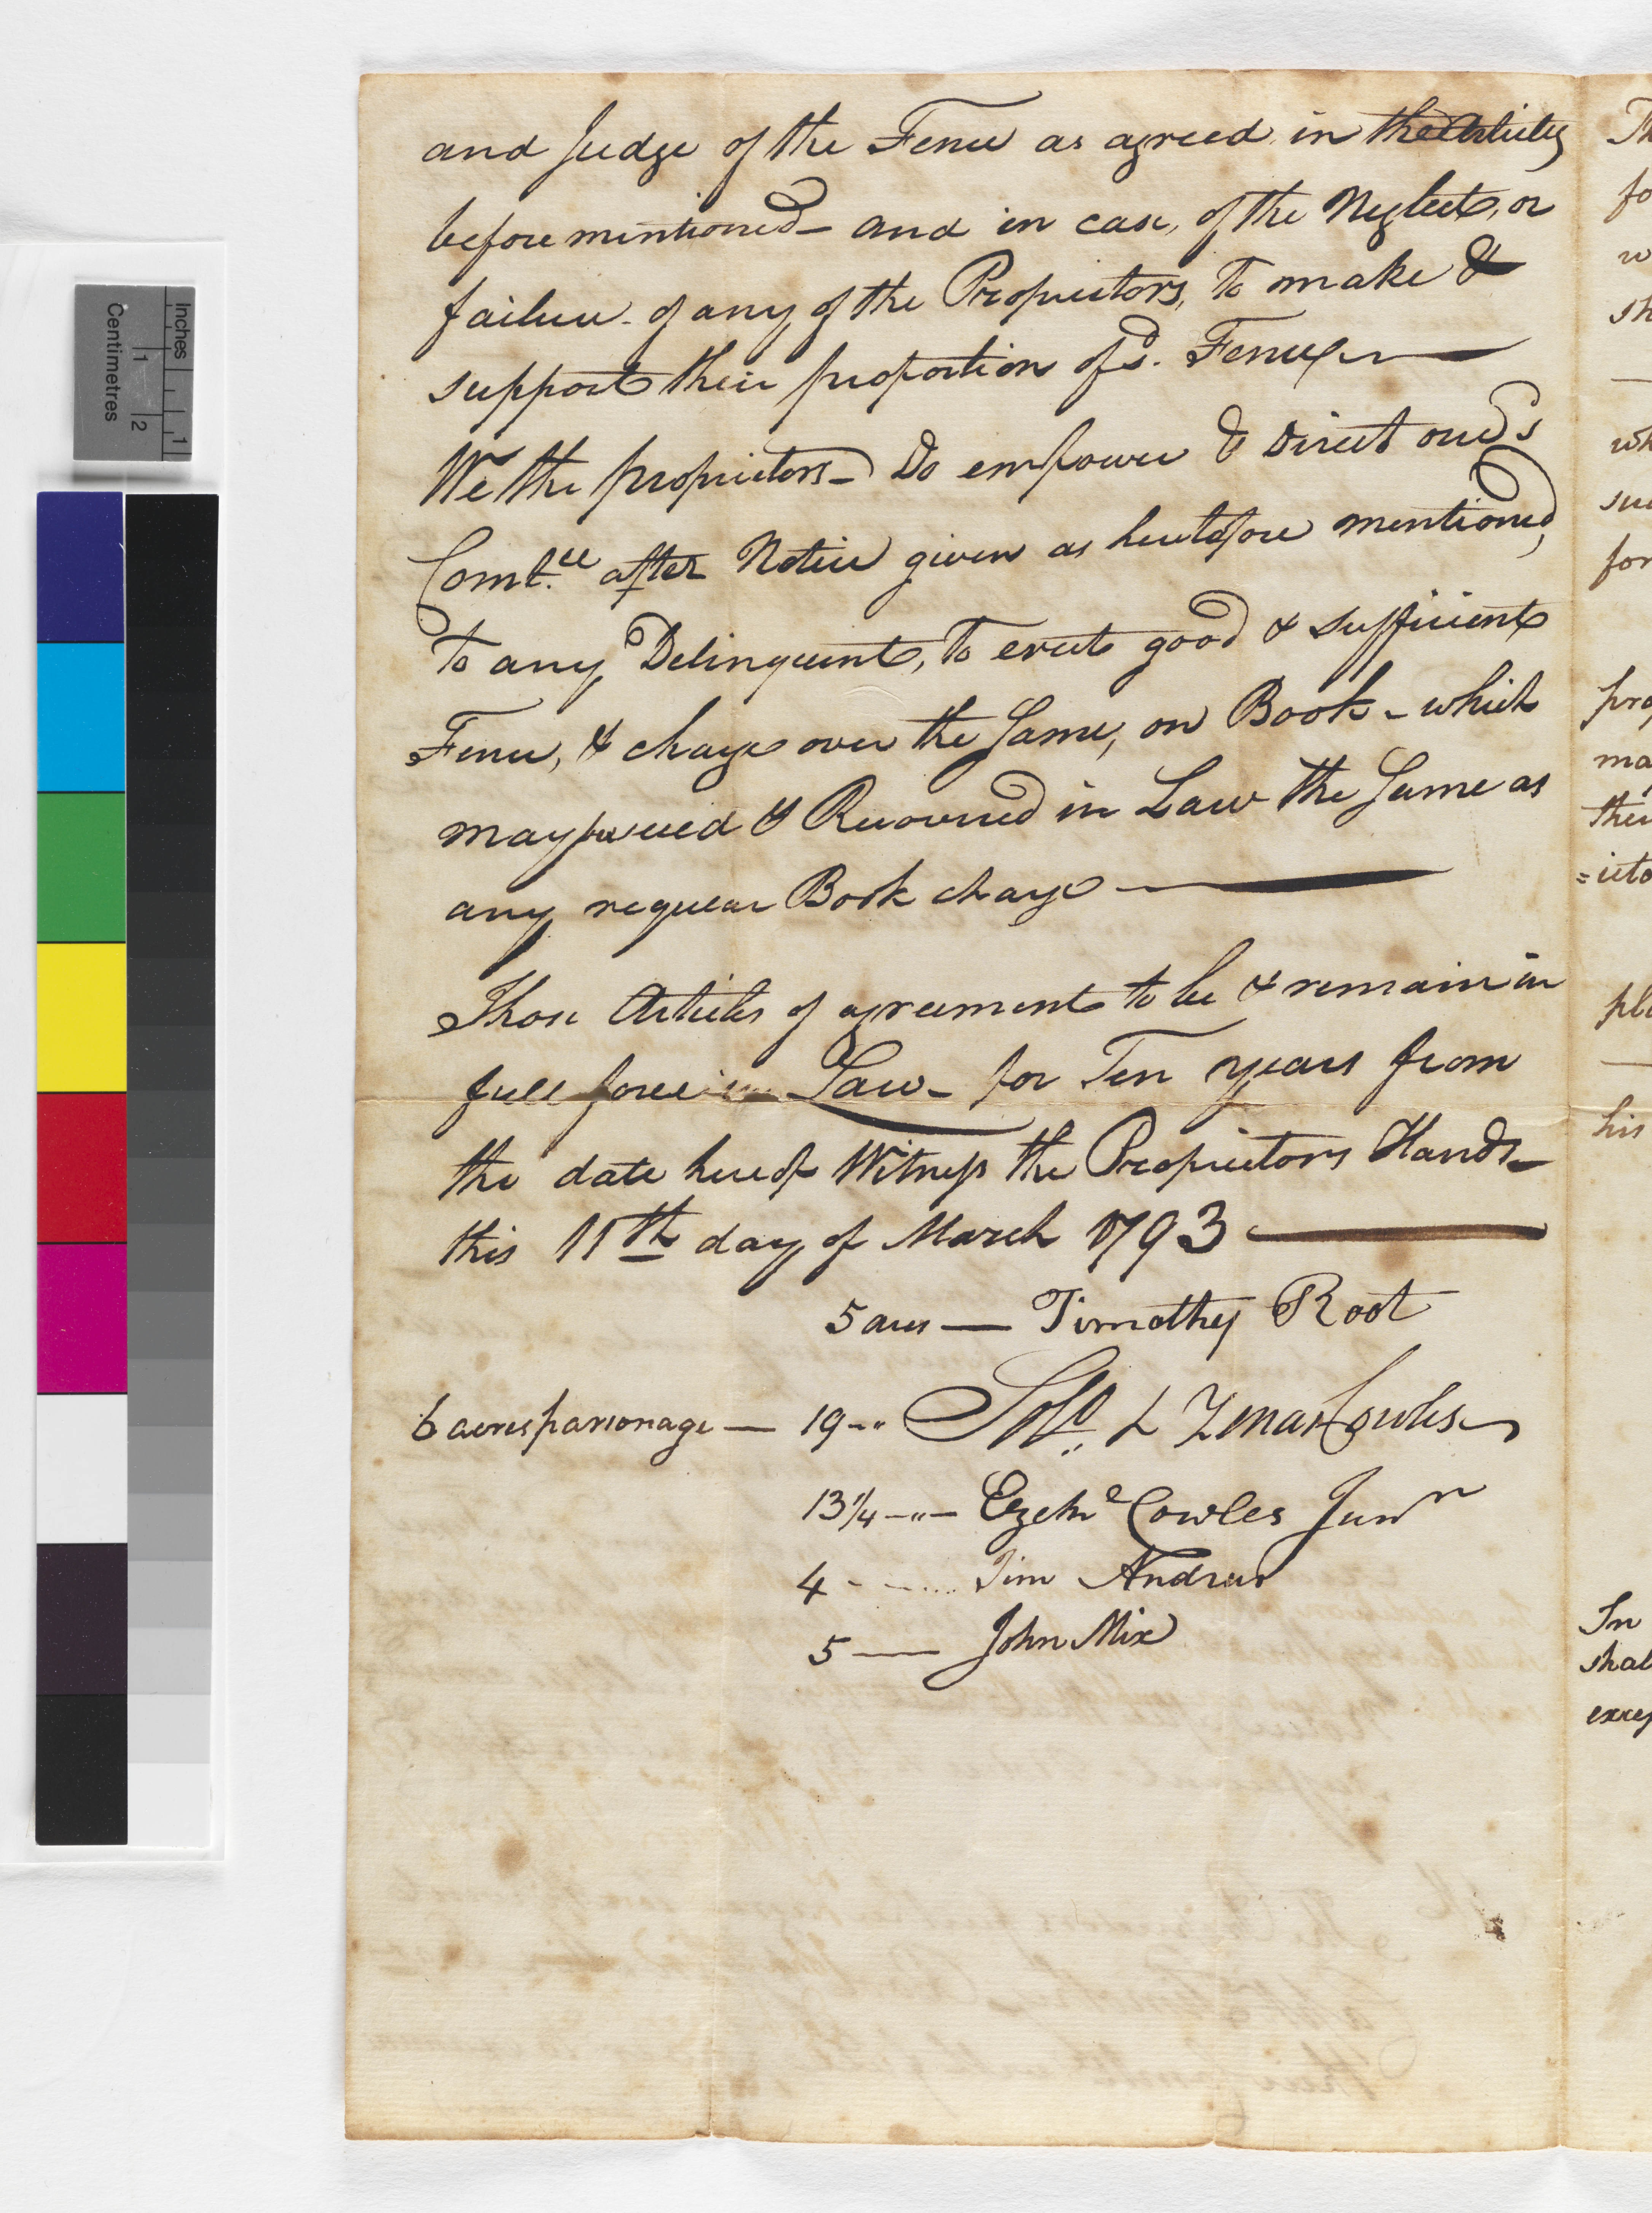 and Judge of the Fence as agreed in the Articles
before mentioned – and in case, of the Neglect, or
failure – of any of the Proprietors, To make &
support their proportion of sd. Fence
We the proprietors – Do empower & Direct our sd
Comt.ee after Notice given as heretofore mentioned,
To any Delinquent, To erect good & sufficient
Fence, & charge over the Same, on Book – which
may be sued & Recovered in Law the Same as
any regular Book charge
Those Articles of agreement to be & remain in
full force in Law – for Ten years from
the date hereof Witness the Proprietors Hands –
this 11th day of March 1793
5 acrs — Timothy Root
6 acres parsonage — 19 –" Solo. & Zenas Cowles
13 1/4 –"– Ezekl Cowles Junr
4 - - Tim Andrus
5 — John Mix
Th
fo
w
sh
wh
suc
for
pro
ma
thei
=ieto
pla
his
In
shal
excep
Inches
1
Centimetres
1
2